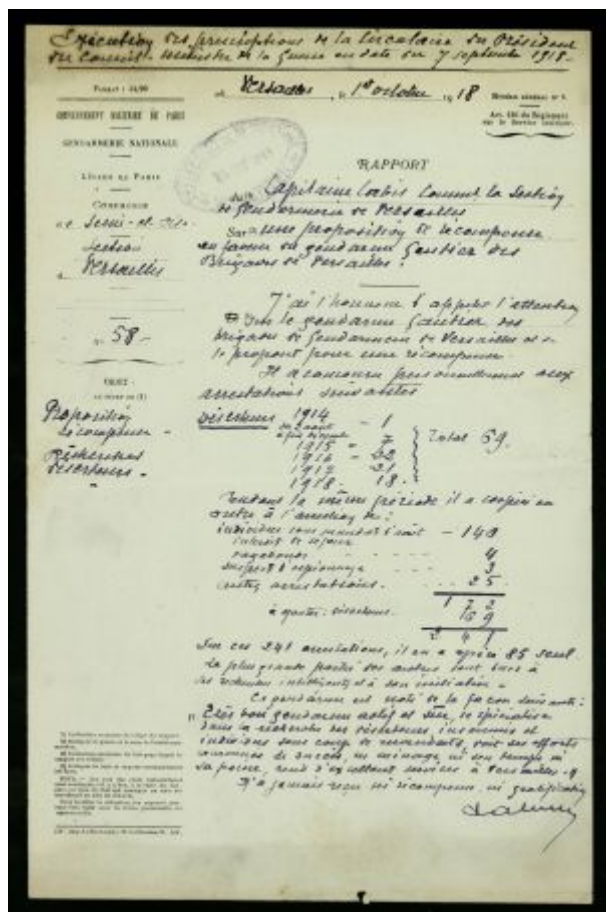 Exécution des prescriptions de la Circulaire du Président
du Conseil - Ministre de la Guerre en date du 7 septembre 1918 -
Format : 21/30
GOUVERNEMENT MILITAIRE DE PARIS
GENDARMERIE NATIONALE
LÉGION DE PARIS
COMPAGNIE
de Seine-et-Oise
Section
Versailles
N° 58 -
OBJET
Proposition
récompense -
Recherches
déserteurs -
Versailles, le 1er octobre 1918
Art. du Règlement
sur le Service intérieur.
RAPPORT
du Capitaine Commt la Section
de gendarmerie de Versailles
Sur une proposition de récompense
en faveur du gendarme Gautier des
Brigades de Versailles.
J'ai l'honneur d'appeler l'attention
sur le gendarme Gautier des
brigades de gendarmerie de Versailles et de
le proposer pour une récompense.
Il a concouru personnellement aux
arrestations suivantes
Déserteurs 1914 - 1
1915 = 7
1916 - 22
1917 - 21
1918 - 18
Total 69.
Pendant la même période il a coopéré en
outre à l'arrestation de :
individus sous mandat d'arrêt - 140
interdit de séjour
vagabonds - 4
suspect d'espionnage 3
autres arrestations. 25
172
à ajouter : déserteurs. 69
241
Sur ces 241 arrestations, il en a opéré 85 seul.
La plus grande partie des autres sont dues à
ses recherches intelligentes et à son initiative -
Ce gendarme est noté de la façon suivante :
" Très bon gendarme actif et , se spécialise
dans la recherche des déserteurs, insoumis et
individus sous coup de mandats, voit ses efforts
couronnés de succès, ne ménage, ni son temps ni
sa peine, rend d'excellents services à Versailles "
N'a jamais reçu ni récompense, ni gratification